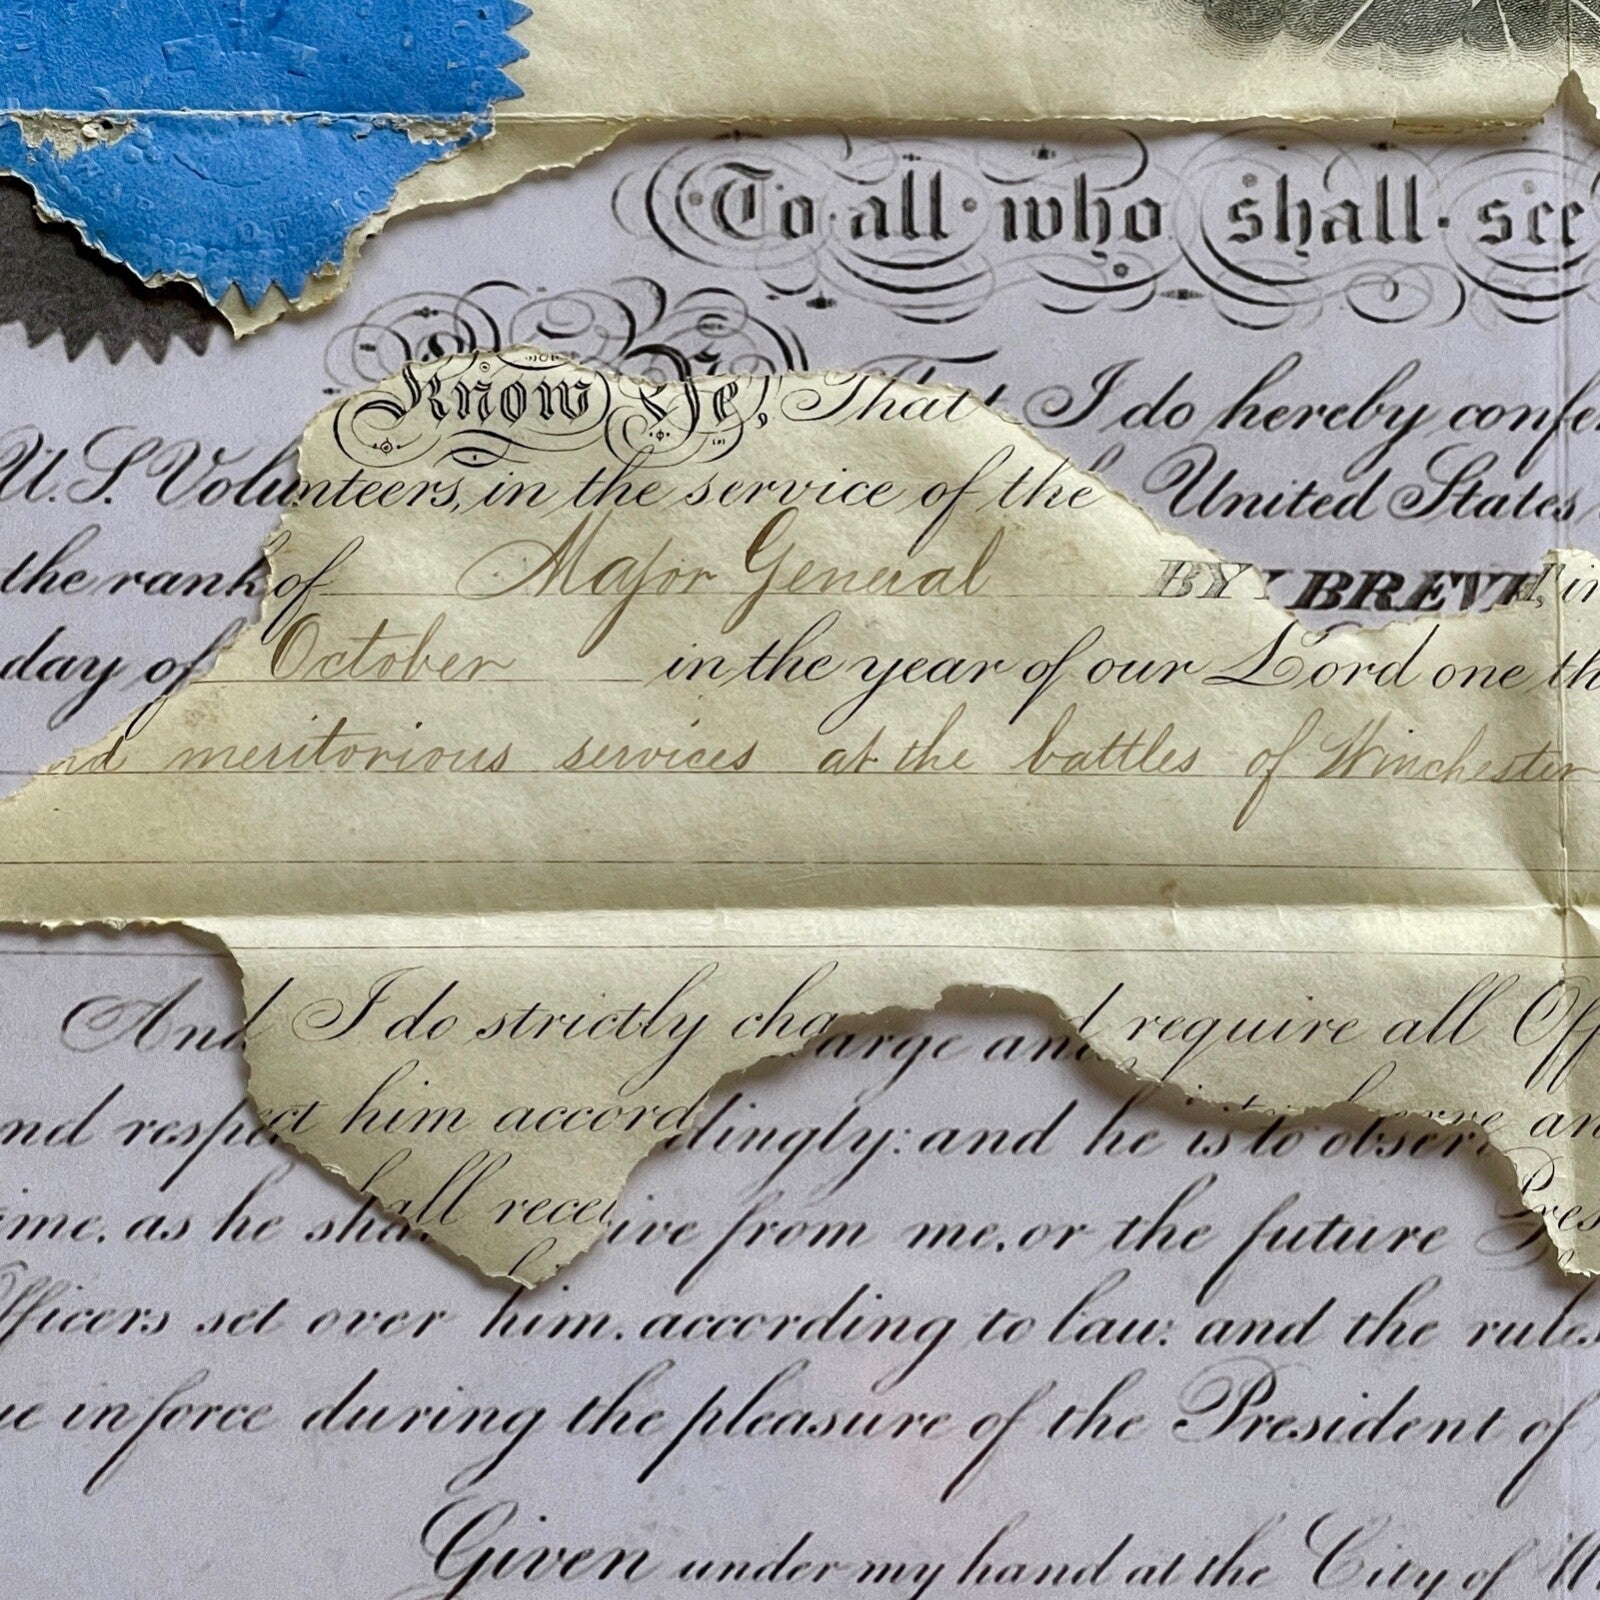 To all who shall see
Know Ye, That I do hereby confer
U.S. Volunteers, in the service of the United States
the rank of Major General BY BREVET, in
day of October in the year of our Lord one th
nd meritorious services at the battles of Winchester
And I do strictly charge and require all Off
nd respect him accordingly: and he is to observe an
ime, as he shall receive from me, or the future Pres
fficers set over him, according to law: and the rules
ue in force during the pleasure of the President of
Given under my hand at the City of W